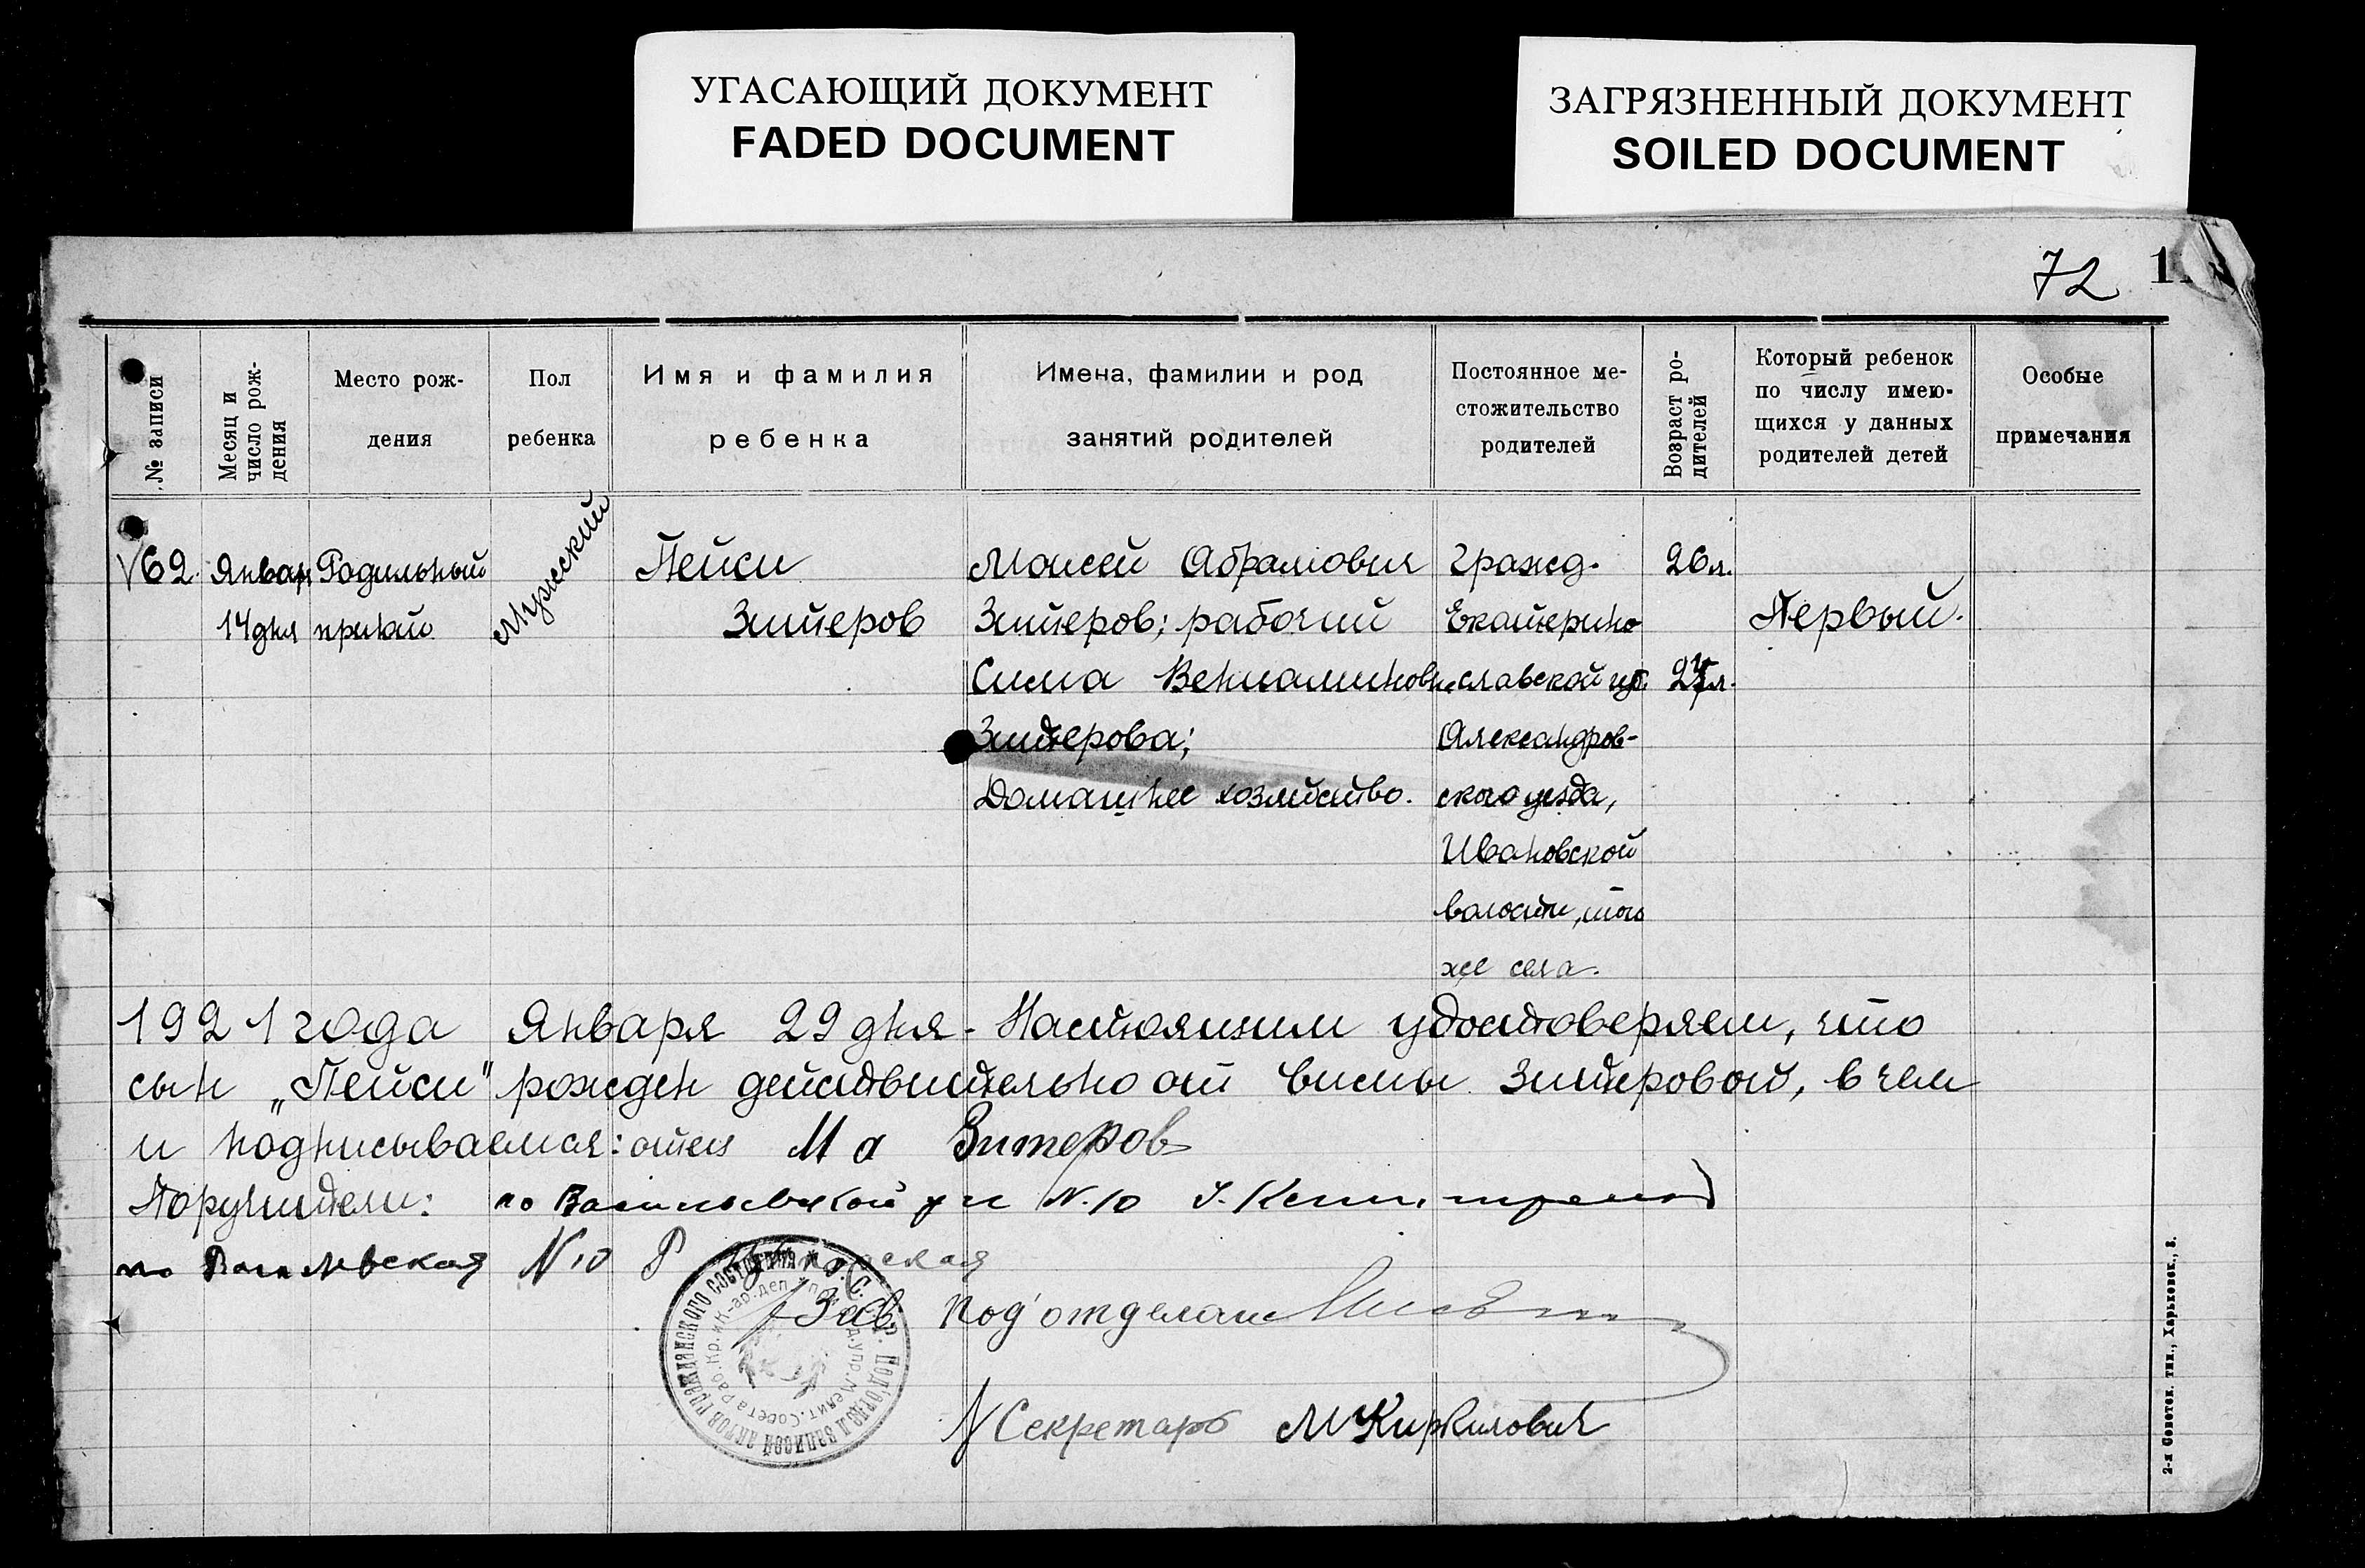 УГАСАЮЩИЙ ДОКУМЕНТ
FADED DOCUMENT
ЗАГРЯЗНЕННЫЙ ДОКУМЕНТ
SOILED DOCUMENT
72
№ записи
Месяц и
число рож-
дения
Место рож-
дения
Пол
ребенка
Имя и фамилия
ребенка
Имена, фамилии и род
занятий родителей
Постоянное ме-
стожительство
родителей
Возраст ро-
дителей
Который ребенок
по числу имею-
щихся у данных
родителей детей
Особые
примечания
62.
Январ
14 дня
Родильный
приют
Мужский
Пейси
Зитеров
Моисей Абрамович
Зитеров; рабочий
Сима Вениаминовн
Зитерова;
Домашнее хозяйство.
Гражд.
Екатерино
славской губ.
Александров-
ского уезда,
Ивановской
волости, того
же села.
26 л.
Первый.
1921 года Января 29 дня. Настоящим удостоверяем, что
сын „Пейси" рожден действительно от Симы Зитеровой, в чем
и подписываемся: отец М а Зитеров
Поручители: по N. 10
по N 10
Зав. Под'отделом
Секретарь М Киркилович
2-я Советск. тип., Харьковск., 8.